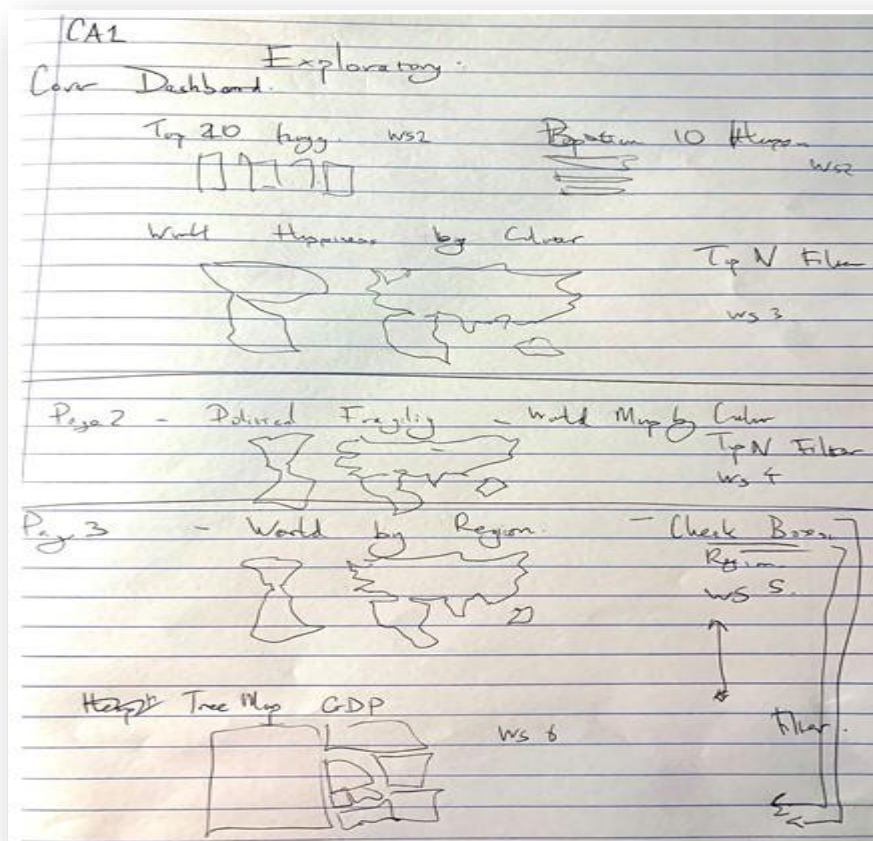 CA1
Exploratory.
Cover Dashboard.
Top 10 WS2
10 Happ
WS2
World Happiness by Colour
Top N Filter
WS 3
Page 2 - Political Fragility - World Map by Color
Top N Filter
WS 4
Page 3 - World by Region. - Check Boxes
Region
WS 5.
Tree Map GDP
WS 6
Filter.